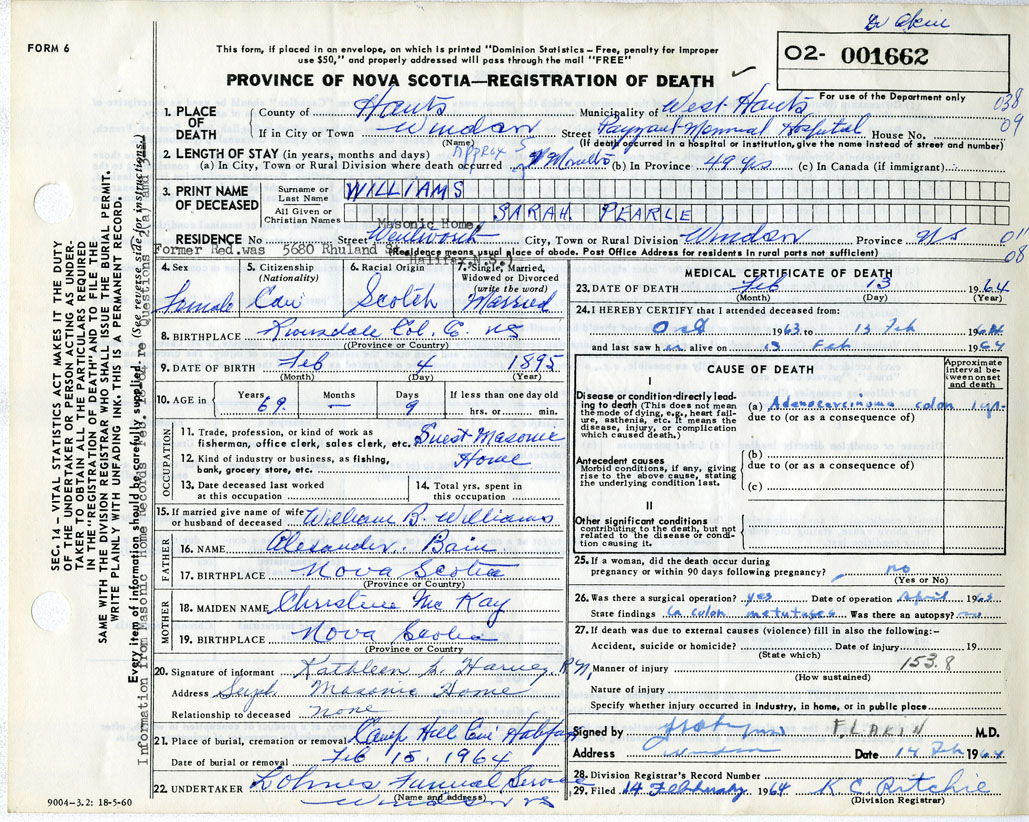 Dr Akin
FORM 6
This form, if placed in an envelope, on which is printed "Dominion Statistics – Free, penalty for improper
use $50," and properly addressed will pass through the mail "FREE"
O2- 001662
PROVINCE OF NOVA SCOTIA—REGISTRATION OF DEATH
For use of the Department only
038
09
1. PLACE OF DEATH
County of Hants Municipality of West Hants
If in City or Town Windsor Street Payzant Memorial Hospital House No.
(Name) (If death occurred in a hospital or institution, give the name instead of street and number)
2. LENGTH OF STAY (in years, months and days) Approx 5
(a) In City, Town or Rural Division where death occurred Months (b) In Province 49 yrs (c) In Canada (if immigrant)
3. PRINT NAME OF DECEASED
Surname or Last Name WILLIAMS
All Given or Christian Names SARAH PEARLE
Masonic Home,
RESIDENCE No Street Wentworth City, Town or Rural Division Windsor Province NS 011
08
Former Red.was 5680 Rhuland St. Halifax, N.S.)
(Residence means usual place of abode. Post Office Address for residents in rural parts not sufficient)
4. Sex
Female
5. Citizenship
(Nationality)
Can
6. Racial Origin
Scotch
7. Single, Married, Widowed or Divorced
(write the word)
Married
8. BIRTHPLACE Col. C. NS
(Province or Country)
9. DATE OF BIRTH Feb 4 1895
(Month) (Day) (Year)
10. AGE in
Years 69 Months — Days 9 If less than one day old
hrs. or min.
OCCUPATION
11. Trade, profession, or kind of work as
fisherman, office clerk, sales clerk, etc. Guest-Masonic
12. Kind of industry or business, as fishing,
bank, grocery store, etc. Home
13. Date deceased last worked
at this occupation
14. Total yrs. spent in
this occupation
15. If married give name of wife
or husband of deceased William B. Williams
FATHER
16. NAME Alexander Bain
17. BIRTHPLACE Nova Scotia
(Province or Country)
MOTHER
18. MAIDEN NAME Christine McKay
19. BIRTHPLACE Nova Scotia
(Province or Country)
20. Signature of informant Kathleen L. Harvey, R.N.
Address Supt Masonic Home
Relationship to deceased none
21. Place of burial, cremation or removal Camp Hill Cem Halifax
Date of burial or removal Feb 15, 1964
22. UNDERTAKER Lohnes Funeral Service
(Name and address)
Windsor NS
9004-3.2: 18-5-60
MEDICAL CERTIFICATE OF DEATH
23. DATE OF DEATH Feb 13 1964
(Month) (Day) (Year)
24. I HEREBY CERTIFY that I attended deceased from:
Oct 1963 to 13 Feb 1964
and last saw her alive on 13 Feb 1964
CAUSE OF DEATH
Approximate interval between onset and death
I
Disease or condition directly leading to death (This does not mean the mode of dying, e.g., heart failure, asthenia, etc. It means the disease, injury, or complication which caused death.)
(a) Adenocarcinoma colon 1 yr
due to (or as a consequence of)
Antecedent causes
Morbid conditions, if any, giving rise to the above cause, stating the underlying condition last.
(b)
due to (or as a consequence of)
(c)
II
Other significant conditions
contributing to the death, but not related to the disease or condition causing it.
25. If a woman, did the death occur during
pregnancy or within 90 days following pregnancy? no
(Yes or No)
26. Was there a surgical operation? yes Date of operation April 1963
State findings Ca colon metastases Was there an autopsy? no
27. If death was due to external causes (violence) fill in also the following:–
Accident, suicide or homicide? Date of injury 19
(State which)
153.8
Manner of injury
(How sustained)
Nature of injury
Specify whether injury occurred in industry, in home, or in public place
Signed by F. L. AKIN M.D.
Address Windsor Date 14 Feb 1964
28. Division Registrar's Record Number
29. Filed 14 February 1964 K C Ritchie
(Division Registrar)
SEC. 14 – VITAL STATISTICS ACT MAKES IT THE DUTY
OF THE UNDERTAKER OR PERSON ACTING AS UNDERTAKER TO OBTAIN ALL THE PARTICULARS REQUIRED
IN THE "REGISTRATION OF DEATH" AND TO FILE THE
SAME WITH THE DIVISION REGISTRAR WHO SHALL ISSUE THE BURIAL PERMIT.
WRITE PLAINLY WITH UNFADING INK. THIS IS A PERMANENT RECORD.
Every item of information should be carefully supplied. (See reverse side for instructions.)
Information from Masonic Home Records Feb. re Questions